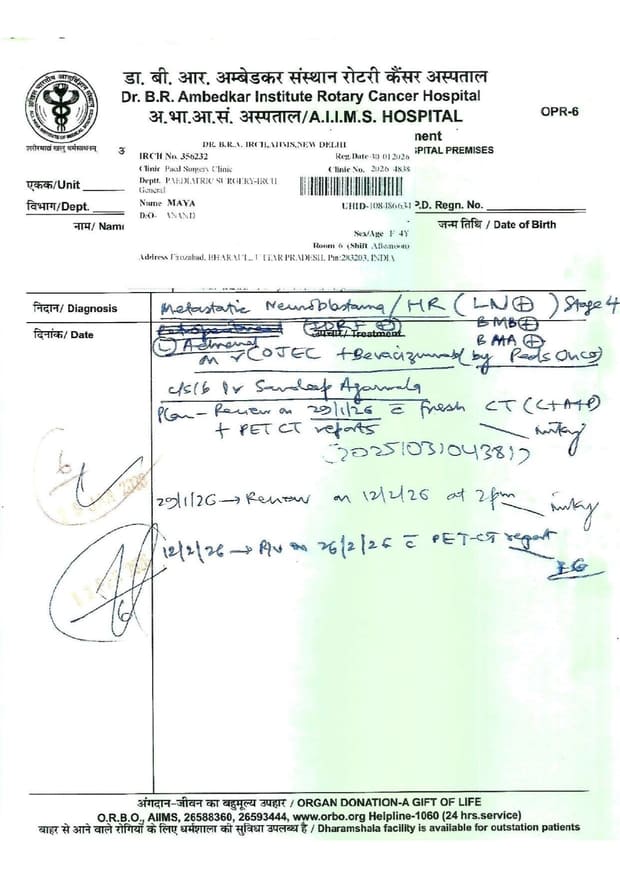 डा. बी. आर. अम्बेडकर संस्थान रोटरी कैंसर अस्पताल
Dr. B.R. Ambedkar Institute Rotary Cancer Hospital
अ.भा.आ.सं. अस्पताल/A.I.I.M.S. HOSPITAL
OPR-6
शरीरमाद्यं खलु धर्मसाधनम्
DR. B.R.A. IRCH, AIIMS, NEW DELHI
SPITAL PREMISES
IRCH No. 356232
Clinic Paed Surgery Clinic
Clinic No. 2026 4838
एकक/Unit
Deptt. PAEDIATRIC SURGERY-IRCH
General
विभाग/Dept.
Name MAYA
P.D. Regn. No.
D/O- ANAND
नाम/ Name
जन्म तिथि / Date of Birth
Sex/Age F 4Y
Room 6 (Shift Afternoon)
Address Firozabad, UTTAR PRADESH, Pin:283203, INDIA
निदान/ Diagnosis
Metastatic Neuroblastoma / HR (LN ⊕) Stage 4
दिनांक/ Date
(IDRF ⊕)
BMB ⊕
उपचार/ Treatment
(L) Adrenal
BMA ⊕
COJEC + Bevacizumab (by Peds Onco)
c/s/b Dr Sandeep Agarwala
Plan - Review on 29/1/26 c̄ fresh CT (C+A+P)
+ PET CT reports
29/1/26 → Review on 12/2/26 at 2pm
12/2/26 → R/v on 26/2/26 c̄ PET-CT report
अंगदान-जीवन का बहुमूल्य उपहार / ORGAN DONATION-A GIFT OF LIFE
O.R.B.O., AIIMS, 26588360, 26593444, www.orbo.org Helpline-1060 (24 hrs.service)
बाहर से आने वाले रोगियों के लिए धर्मशाला की सुविधा उपलब्ध है / Dharamshala facility is available for outstation patients